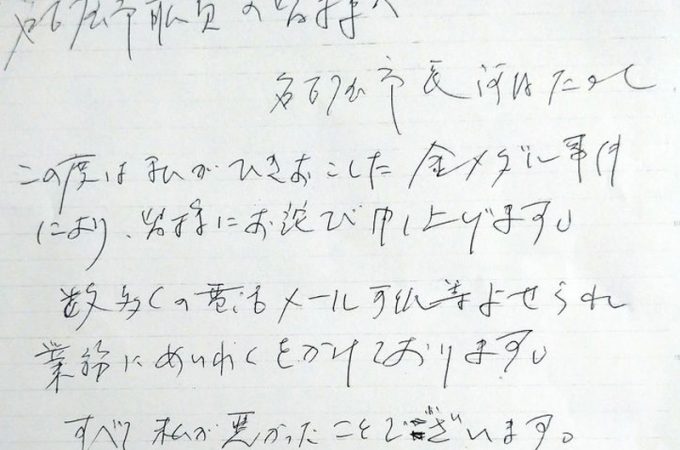 名古屋市職員の皆様へ
名古屋市長河村たかし
この度は私がひきおこした金メダル事件
により、皆様にお詫び申し上げます。
数多くの電話メール手紙等よせられ
業務にめいわくをかけております。
すべて私が悪かったことでございます。